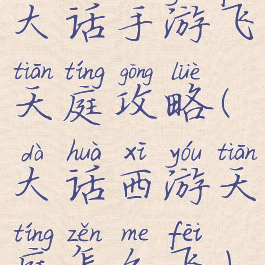 大话手游飞
tiān tíng gōng lüè
天庭攻略(
dà huà xī yóu tiān
大话西游天
tíng zěn me fēi
庭怎么飞)